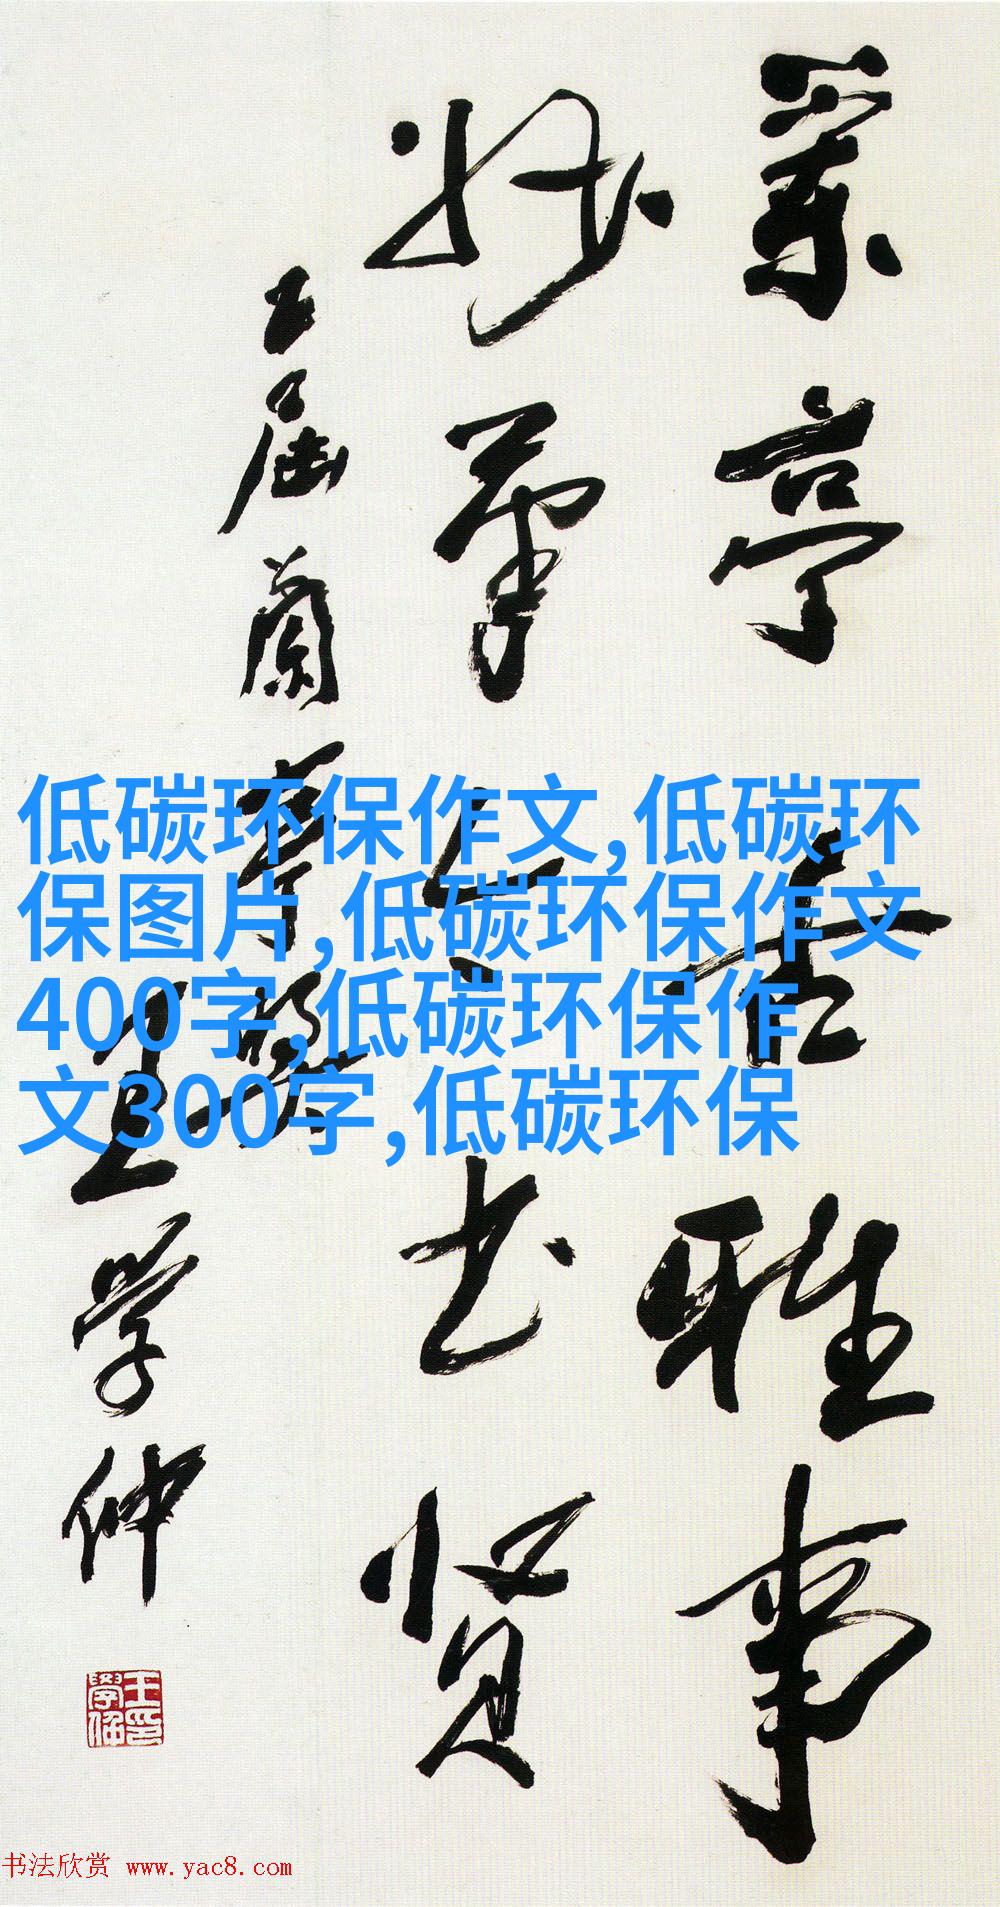 亭 雅事
笔 书贤
五届蘭亭奖
王学仲
低碳环保作文,低碳环
保图片,低碳环保作文
400字,低碳环保作
文300字,低碳环保
书法欣赏 www.yac8.com